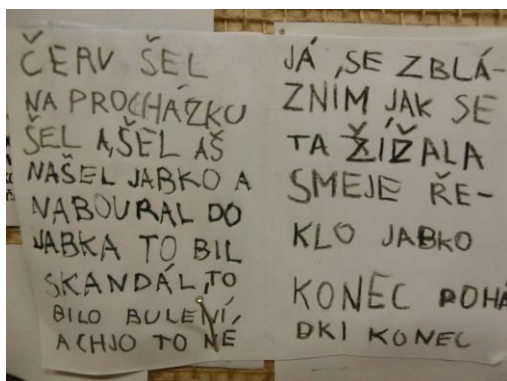 ČERV ŠEL
NA PROCHÁZKU
ŠEL A, ŠEL AŠ
NAŠEL JABKO A
NABOURAL DO
JABKA TO BIL
SKANDÁL, TO
BILO BULENÍ,
ACHJO TO NÉ
JÁ, SE ZBLÁ-
ZNÍM JAK SE
TA ŽÍŽALA
SMEJE ŘE-
KLO JABKO
KONEC POHÁ
DKI KONEC